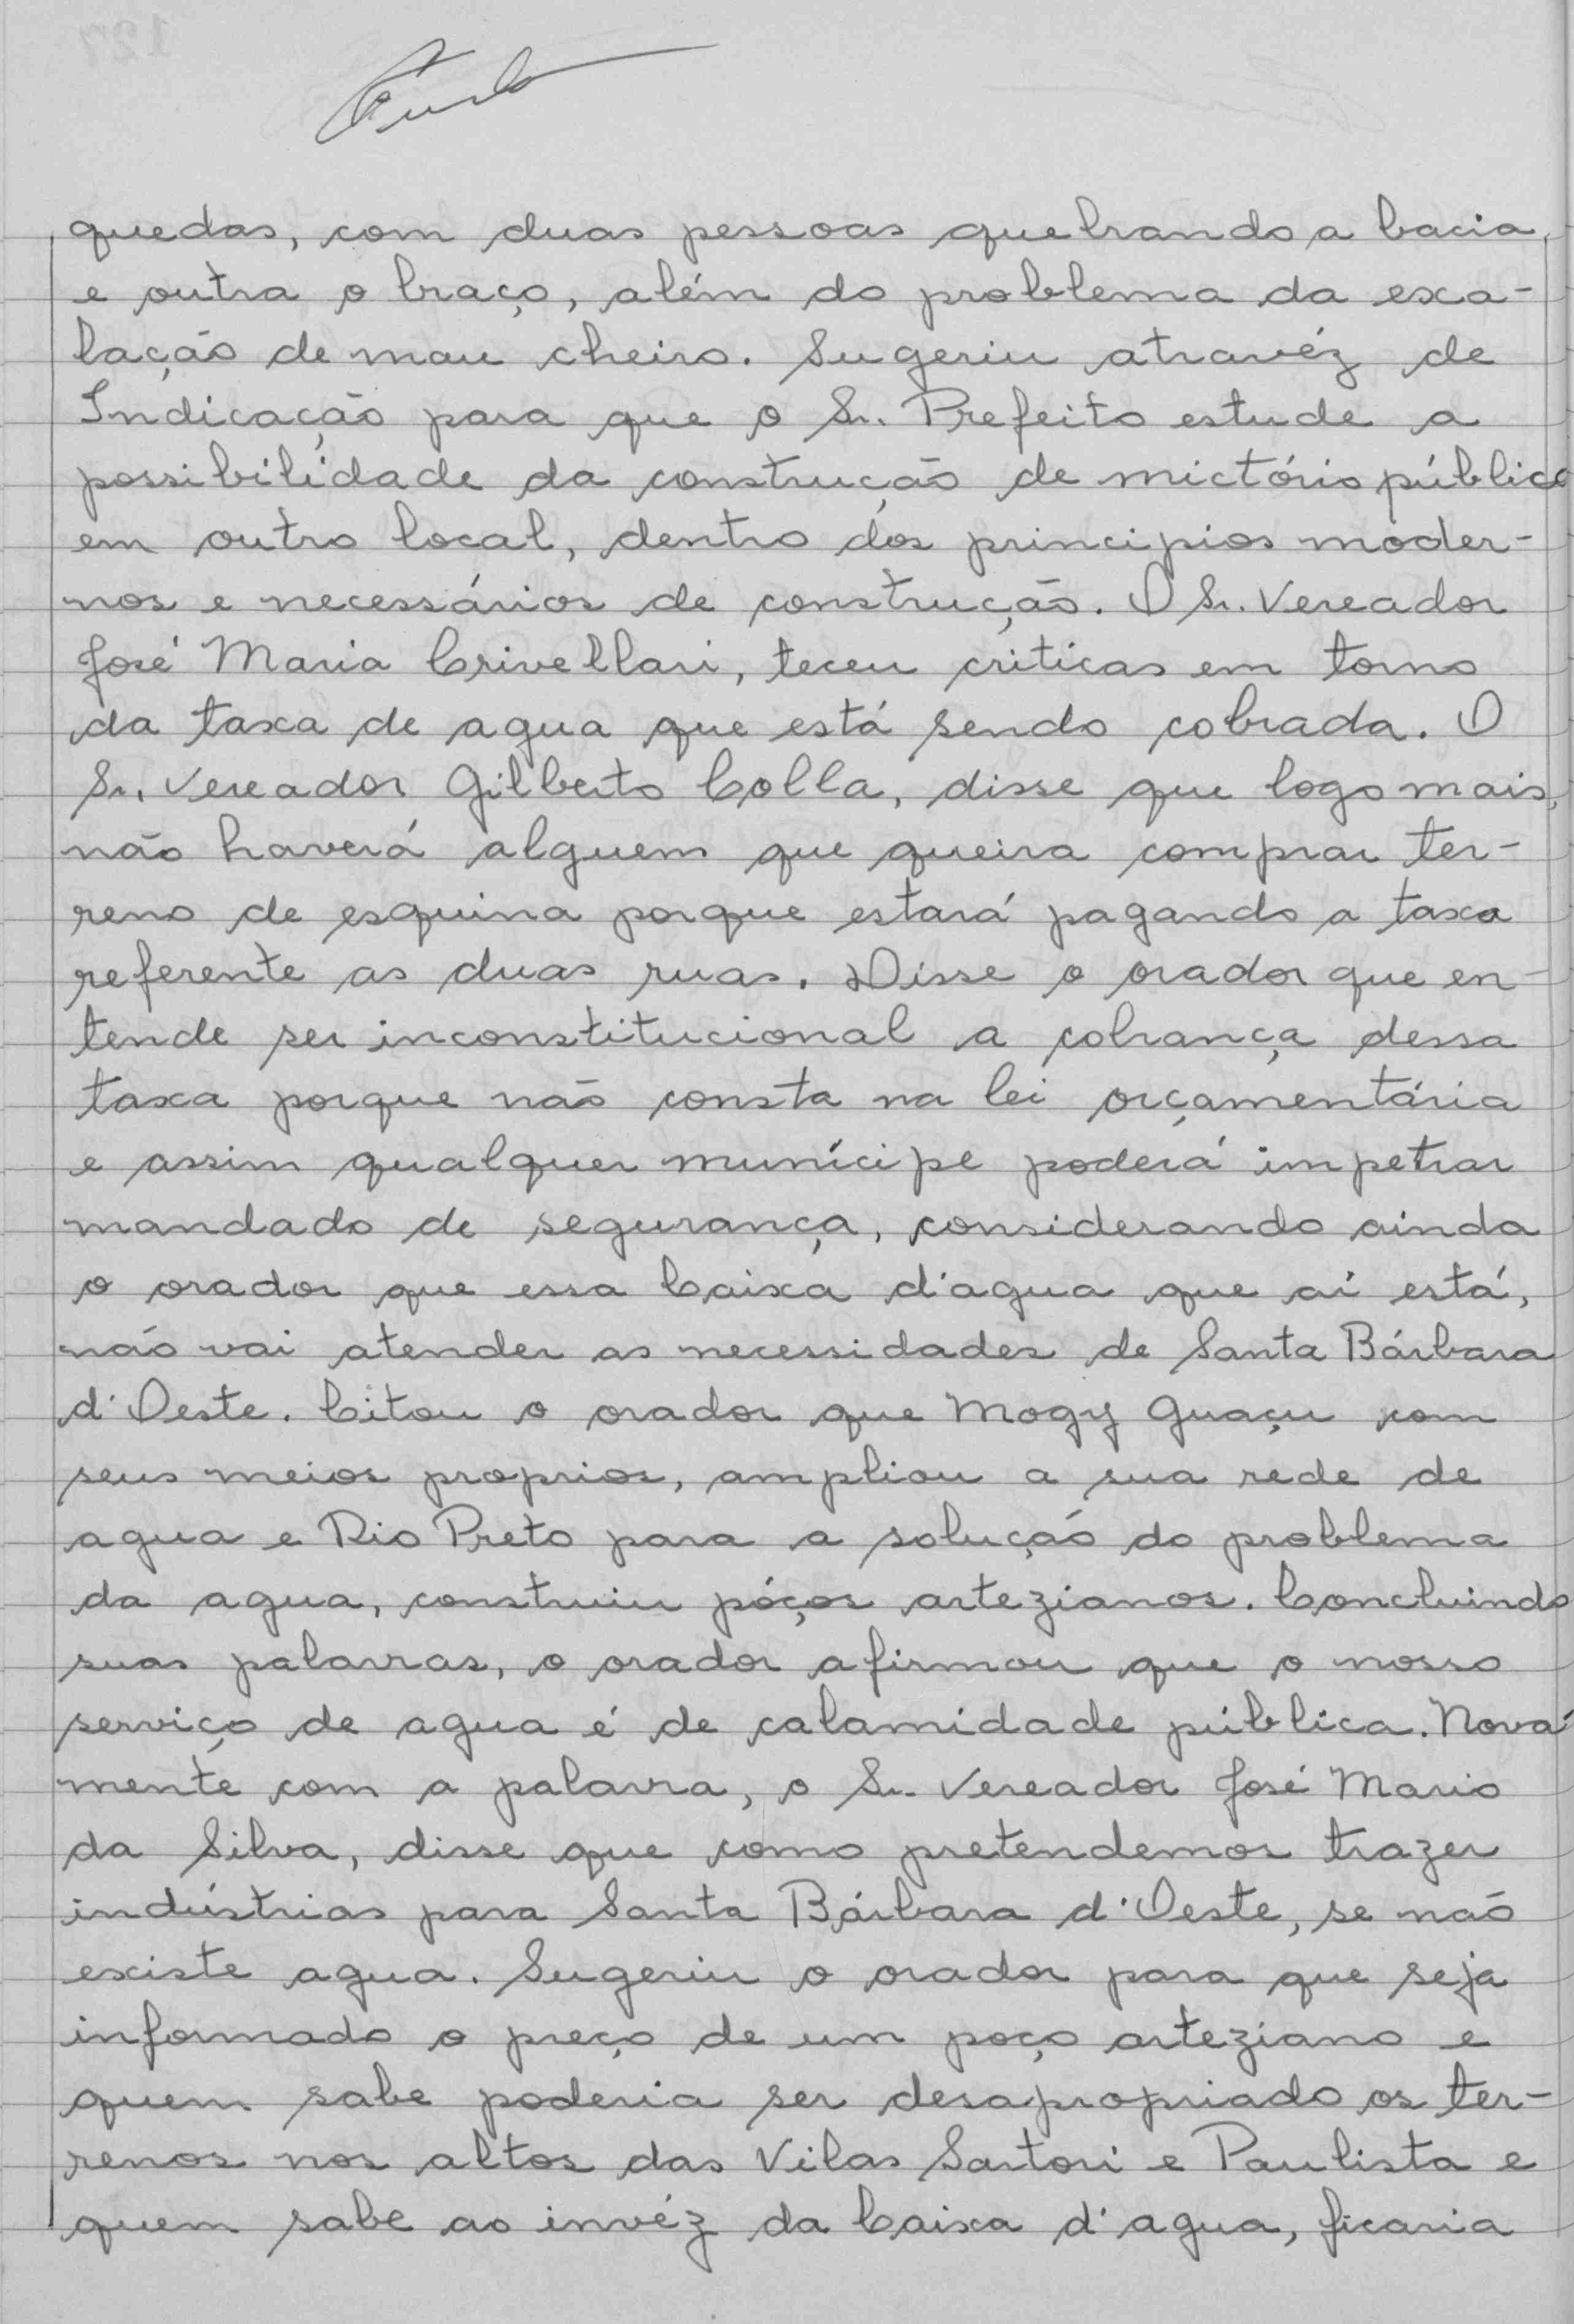 quedas, com duas pessoas quebrando a bacia,
e outra o braço, além do problema da exa-
lação de mau cheiro. Sugeriu atravéz de
Indicação para que o Sr. Prefeito estude a
possibilidade da construção de mictório público
em outro local, dentro dos principios moder-
nos e necessários de construção. O Sr. Vereador
José Maria Crivellari, teceu criticas em torno
da taxa de agua que está sendo cobrada. O
Sr. Vereador Gilberto Colla, disse que logo mais,
não haverá alguem que queira comprar ter-
reno de esquina porque estará pagando a taxa
referente as duas ruas. Disse o orador que en-
tende ser inconstitucional a cobrança dessa
taxa porque não consta na lei orçamentária
e assim qualquer munícipe poderá impetrar
mandado de segurança, considerando ainda
o orador que essa Caixa d'agua que aí está,
não vai atender as necessidades de Santa Bárbara
d'Oeste. Citou o orador que Mogy Guaçu com
seus meios proprios, ampliou a sua rede de
agua e Rio Preto para a solução do problema
da agua, construiu póços artezianos. Concluindo
suas palavras, o orador afirmou que o nosso
serviço de agua é de calamidade pública. Nova-
mente com a palavra, o Sr. Vereador José Mario
da Silva, disse que como pretendemos trazer
indústrias para Santa Bárbara d'Oeste, se não
existe agua. Sugeriu o orador para que seja
informado o preço de um poço arteziano e
quem sabe poderia ser desapropriado os ter-
renos nos altos das Vilas Sartori e Paulista e
quem sabe ao invéz da Caixa d'agua, ficaria